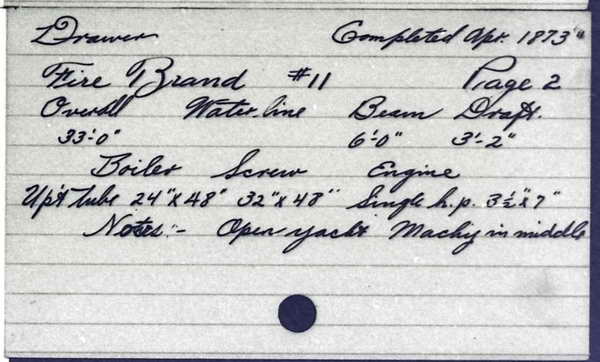 Drawer Completed Apr. 1873"
Fire Brand #11 Page 2
Overall Water line Beam Draft.
33'-0" 6'-0" 3'-2"
Boiler Screw Engine
Up't tube 24"x48" 32"x48" Single h.p. 3½"x7"
Notes:- Open yacht Machy in middle